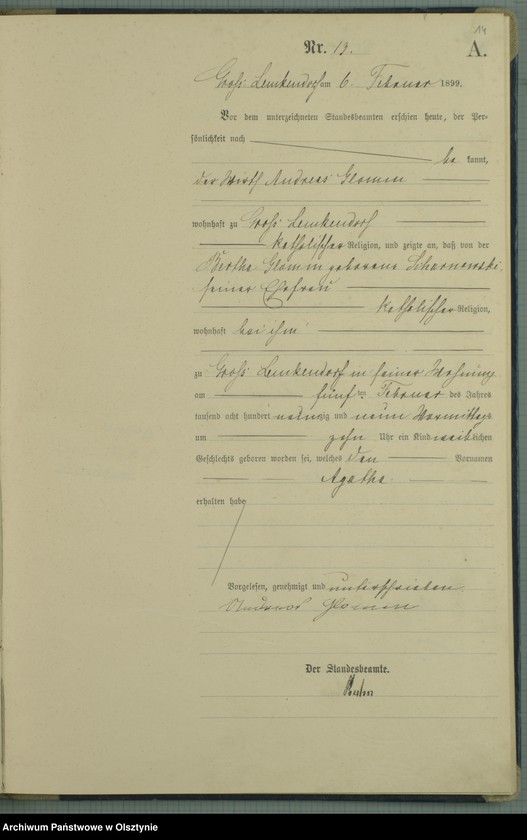 14
Nr. 13.
A.
Groß Lemkendorf am 6. Februar 1899.
Vor dem unterzeichneten Standesbeamten erschien heute, der Per-
sönlichkeit nach
be kannt,
der Wirth Andreas Glomm
wohnhaft zu Groß Lemkendorf
katholischer Religion, und zeigte an, daß von der
Bertha Glomm geborene Scharnowski,
seiner Ehefrau
katholischer Religion,
wohnhaft bei ihm
zu Groß Lemkendorf in seiner Wohnung
am fünften Februar des Jahres
tausend acht hundert neunzig und neun Vormittags
um zehn Uhr ein Kind weiblichen
Geschlechts geboren worden sei, welches den Vornamen
Agatha
erhalten habe
Vorgelesen, genehmigt und unterschrieben.
Andreas Glomm
Der Standesbeamte.
Archiwum Państwowe w Olsztynie